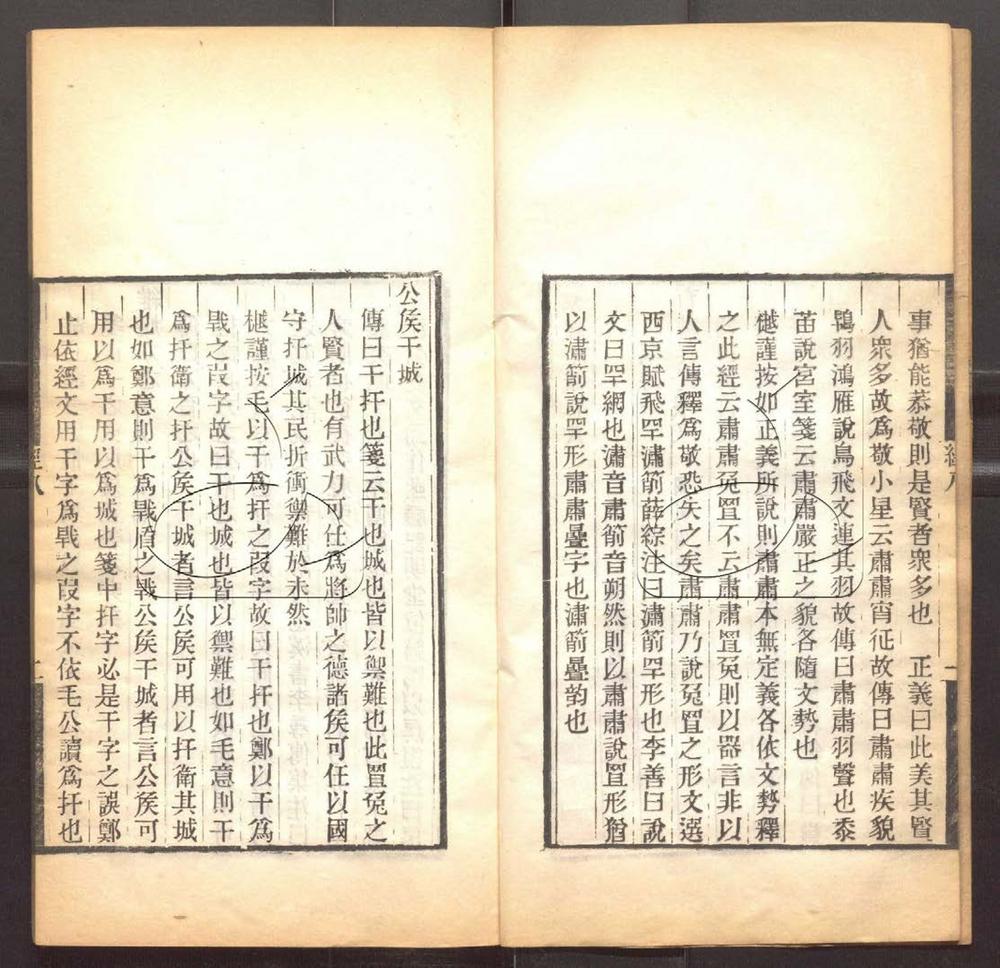 事猶能恭敬則是賢者衆多也　正義曰此美其賢
人衆多故爲敬小星云肅肅宵征故傳曰肅肅疾貌
鴇羽鴻雁說鳥飛文連其羽故傳曰肅肅羽聲也黍
苗說宮室箋云肅肅嚴正之貌各隨文勢也
樾謹按如正義所說則肅肅本無定義各依文勢釋
之此經云肅肅兔罝不云肅肅罝兔則以器言非以
人言傳釋爲敬恐失之矣肅肅乃說兔罝之形文選
西京賦飛罕潚箾薛綜注曰潚箾罕形也李善曰說
文曰罕網也潚音肅箾音朔然則以肅肅說罝形猶
以潚箾說罕形肅肅疊字也潚箾疊韵也
公矦干城
傳曰干扞也箋云干也城也皆以禦難也此罝兔之
人賢者也有武力可任爲將帥之德諸矦可任以國
守扞城其民折衝禦難於未然
樾謹按毛以干爲扞之叚字故曰干扞也鄭以干爲
戰之叚字故曰干也城也皆以禦難也如毛意則干
爲扞衛之扞公矦干城者言公矦可用以扞衛其城
也如鄭意則干爲戰盾之戰公矦干城者言公矦可
用以爲干用以爲城也箋中扞字必是干字之誤鄭
止依經文用干字爲戰之叚字不依毛公讀爲扞也
經八